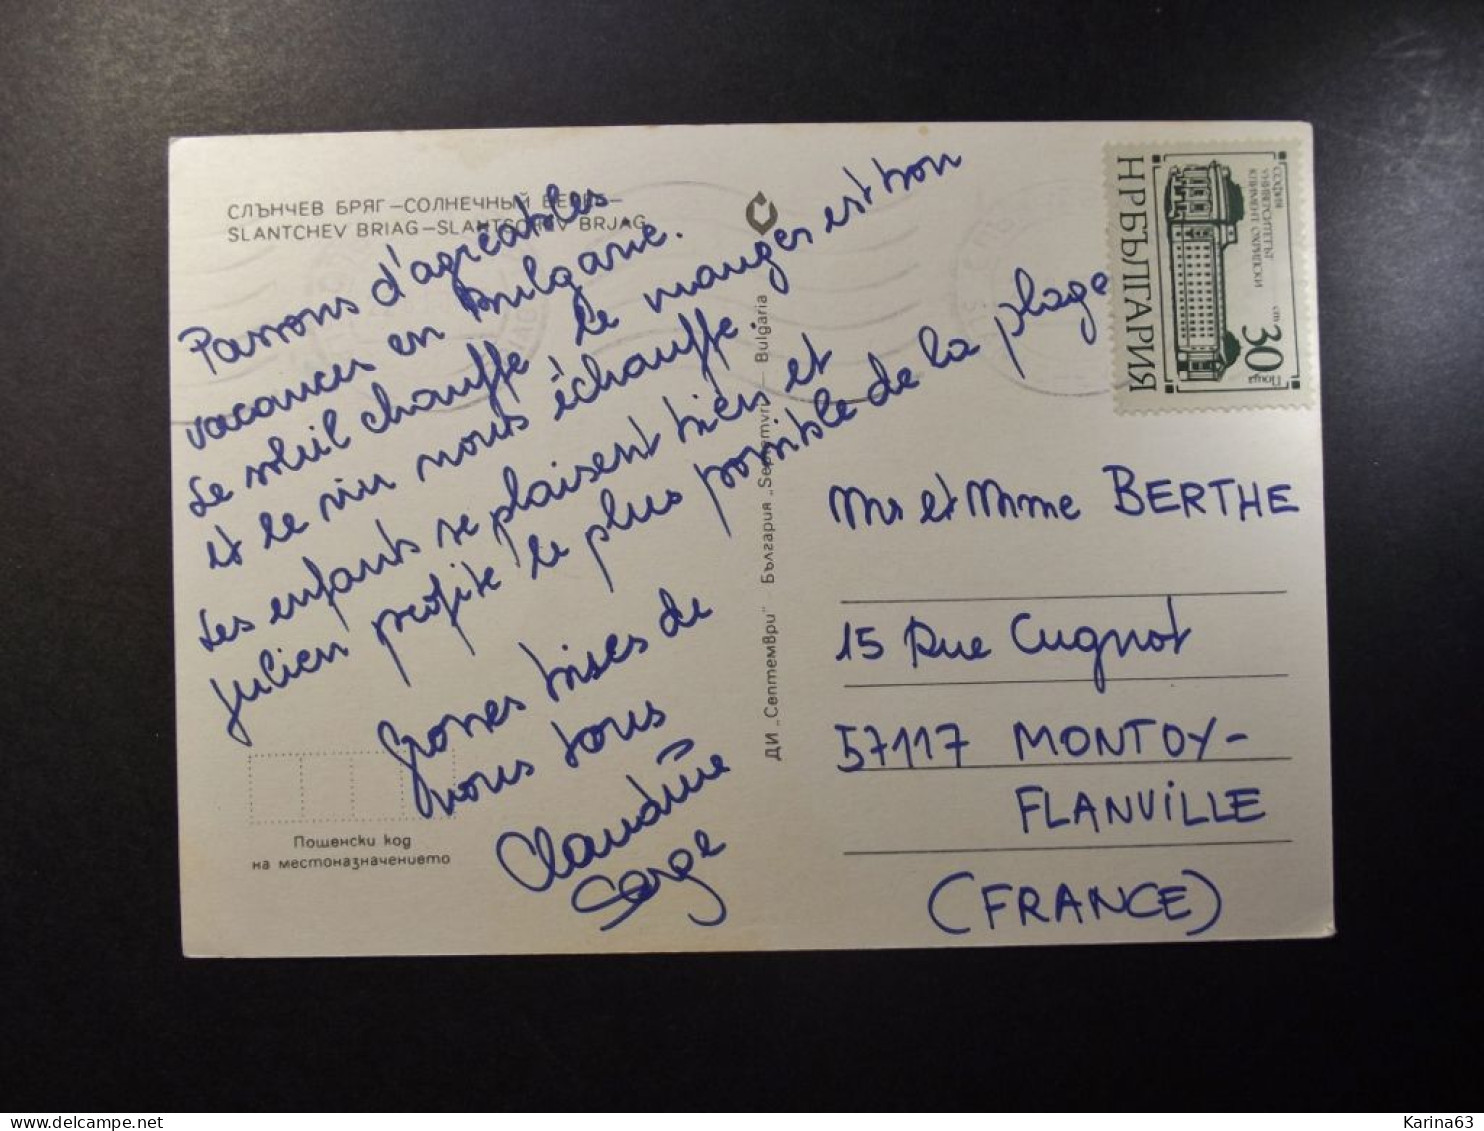 СЛЪНЧЕВ БРЯГ—СОЛНЕЧНЫЙ БЕРЕГ—
SLANTCHEV BRIAG—SLANTSCHEV BRJAG
Passons d'agréables
vacances en Bulgarie.
Le soleil chauffe le manger est bon
et le vin nous échauffe
Les enfants se plaisent biens et
Julien profite le plus possible de la plage
Grosses bises de
nous tous
Claudine
Serge
Пощенски код
на местоназначението
ДИ „Септември“ — България „Septemvri“ — Bulgaria
НР БЪЛГАРИЯ
СОФИЯ
УНИВЕРСИТЕТЪТ
КЛИМЕНТ ОХРИДСКИ
30 ст
Поща
Mr et Mme BERTHE
15 Rue Cugnot
57117 MONTOY-
FLANVILLE
(FRANCE)
https://www.delcampe.net
Karina63